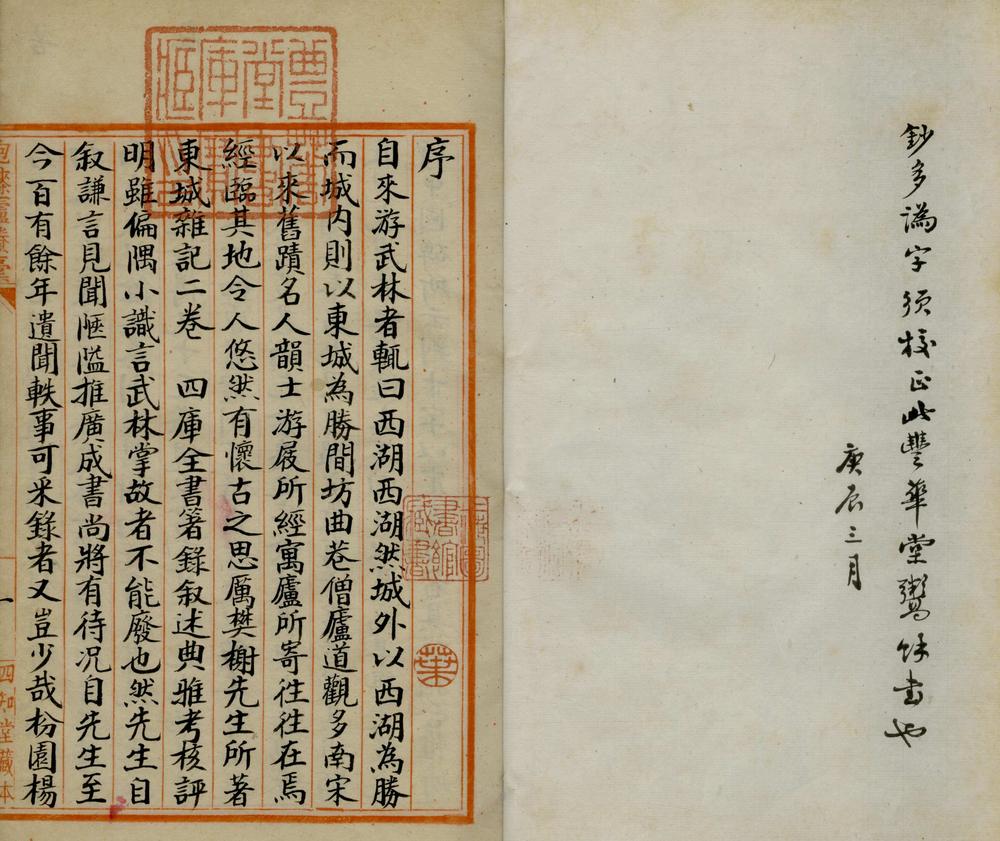 鈔多譌字須校正此豐華堂鬻餘書也
庚辰三月
序
自來游武林者輒曰西湖西湖然城外以西湖為勝
而城內則以東城為勝間坊曲巷僧廬道觀多南宋
以來舊蹟名人韻士游屐所經寓廬所寄往往在焉
經臨其地令人悠然有懷古之思厲樊榭先生所著
東城雜記二卷　四庫全書箸錄叙述典雅考核評
明雖偏隅小識言武林掌故者不能廢也然先生自
叙謙言見聞陿隘推廣成書尚將有待況自先生至
今百有餘年遺聞軼事可采錄者又豈少哉枌園楊
一
四知堂藏本
葉